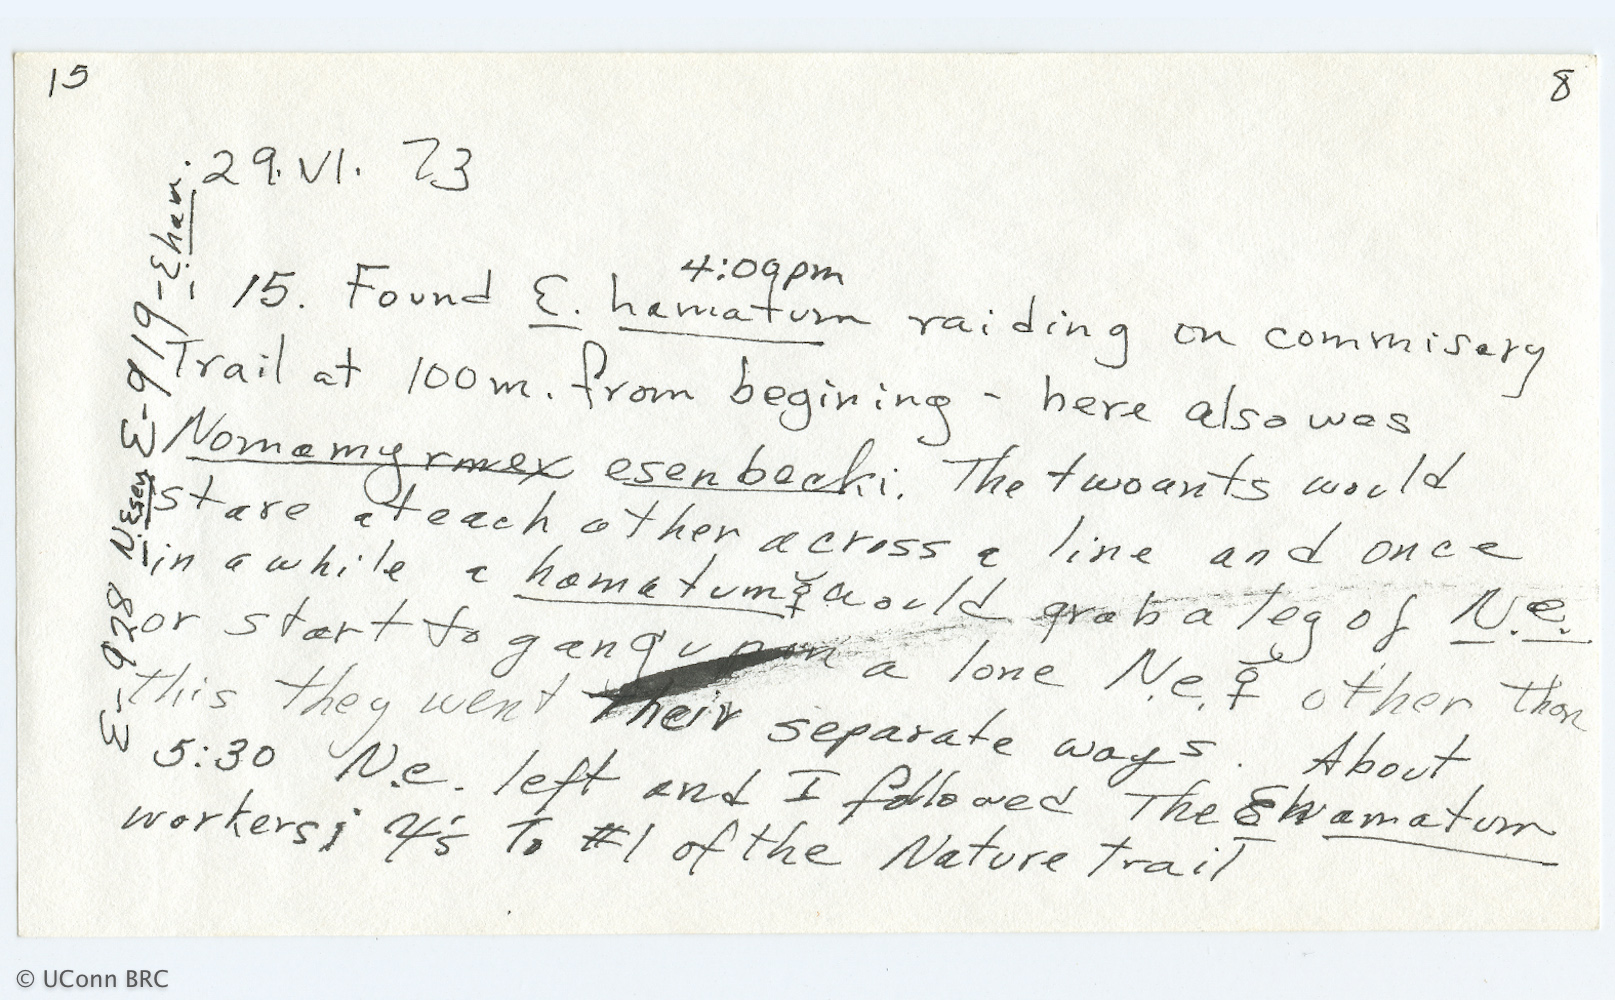 15
8
29.VI. 73
4:09pm
15. Found E. hamatum raiding on commisary
Trail at 100m. from begining - here also was
Nomamyrmex esenbecki. The two ants would
stare at each other across a line and once
in a while a hamatum ☿ would grab a leg of N.e.
or start to gang up on a lone N.e. ☿ other than
this they went their separate ways. About
5:30 N.e. left and I followed The E hamatum
workers; 4's To #1 of the Nature trail
E-919-E.ham.
E-928 N.Esen
© UConn BRC